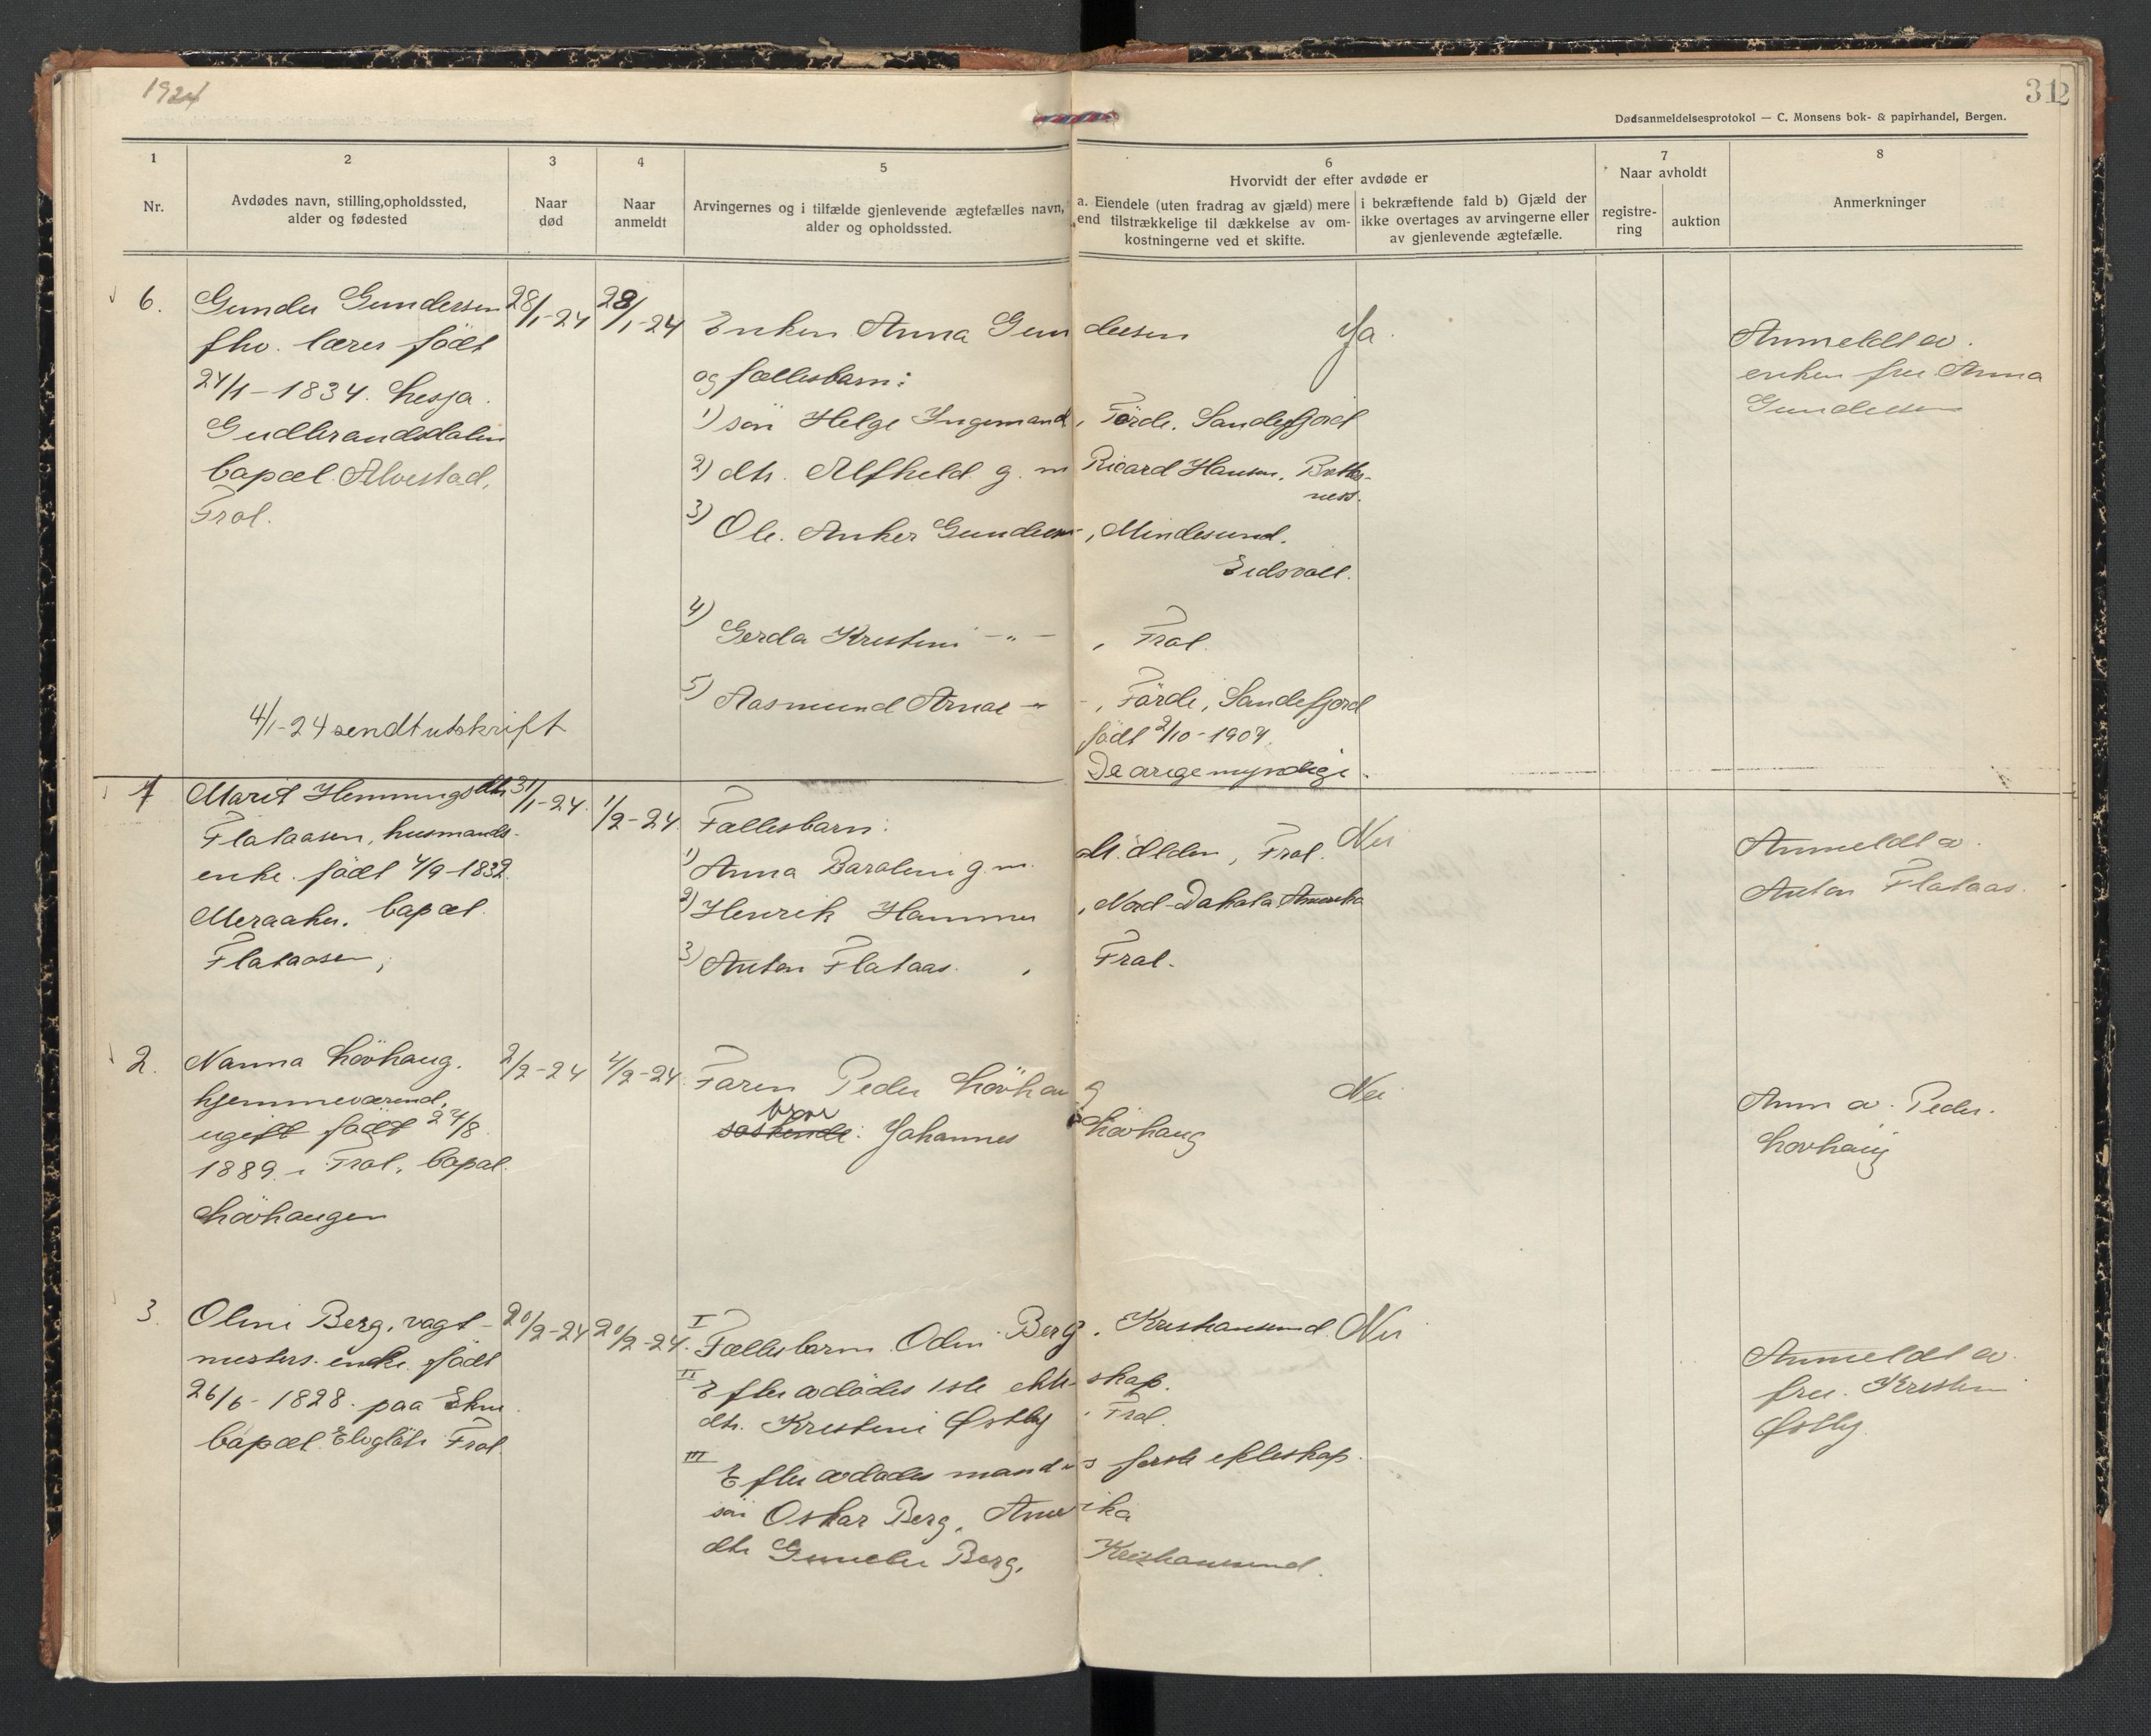 1924
312
Dødsanmeldelsesprotokol — C. Monsens bok- & papirhandel, Bergen.
1
Nr.
2
Avdødes navn, stilling, opholdssted,
alder og fødested
3
Naar
død
4
Naar
anmeldt
5
Arvingernes og i tilfælde gjenlevende ægtefælles navn,
alder og opholdssted.
6
Hvorvidt der efter avdøde er
a. Eiendele (uten fradrag av gjæld) mere
end tilstrækkelige til dækkelse av om-
kostningerne ved et skifte.
i bekræftende fald b) Gjæld der
ikke overtages av arvingerne eller
av gjenlevende ægtefælle.
7
Naar avholdt
registre-
ring
auktion
8
Anmerkninger
6.
Gunder Gundersen
fhv. lærer født
24/1-1834. Lesja.
Gudbrandsdalen
bopæl Alvestad,
Frol.
28/1-24
28/1-24
Enken Anna Gundersen
og fællesbarn:
1) søn Helge Ingemand, Förde. Sandefjord
2) dtr. Alfheld g. m Ricard Hansen,
ness.
3) Ole Anker Gundersen, Mindesund.
Eidsvoll.
4) Gerda Kristine -"- , Frol.
5) Aasmund Arnol -"- , Förde, Sandefjord
født 2/10-1907
De øvrige myndige.
Ja.
Anmeldt av.
enken fru Anna
Gundersen
4/1-24 sendt utskrift
1
Marit Hemmingsdtr
Flataasen, husmands-
enke. født 4/9-1832
Meraaker. bopæl
Flataasen,
31/1-24.
1/2-24
Fællesbarn:
1) Anna Baroline g. m. M. Alden, Frol.
2) Henrik Hammer , Nord-Dakota Amerika
3) Anton Flataas. , Frol.
Nei
Anmeldt av.
Anton Flataas.
2.
Nanna Lövhaug.
hjemmeværend,
ugift født 24/8
1889 i Frol. bopæl.
Lövhaugen
2/2-24
4/2-24
Faren Peder Lövhaug
bror
søskende: Johannes Lövhaug
Nei
Anm av. Peder.
Lövhaug
3.
Oline Berg, vagt-
mesters. enke. født
26/6-1828. paa Ekne
bopæl Frol
20/2-24
20/2-24.
I Fællesbarn Odin Berg, Kristiansund.
II Efter avdødes 1ste ekteskap.
dtr. Kristine Østby , Frol.
III Efter avdødes mands første ekteskap.
søn Oskar Berg, Amerika
dtr Berg, Kristiansund.
Nei
Anmeldt av.
fru. Kristine
Østby.